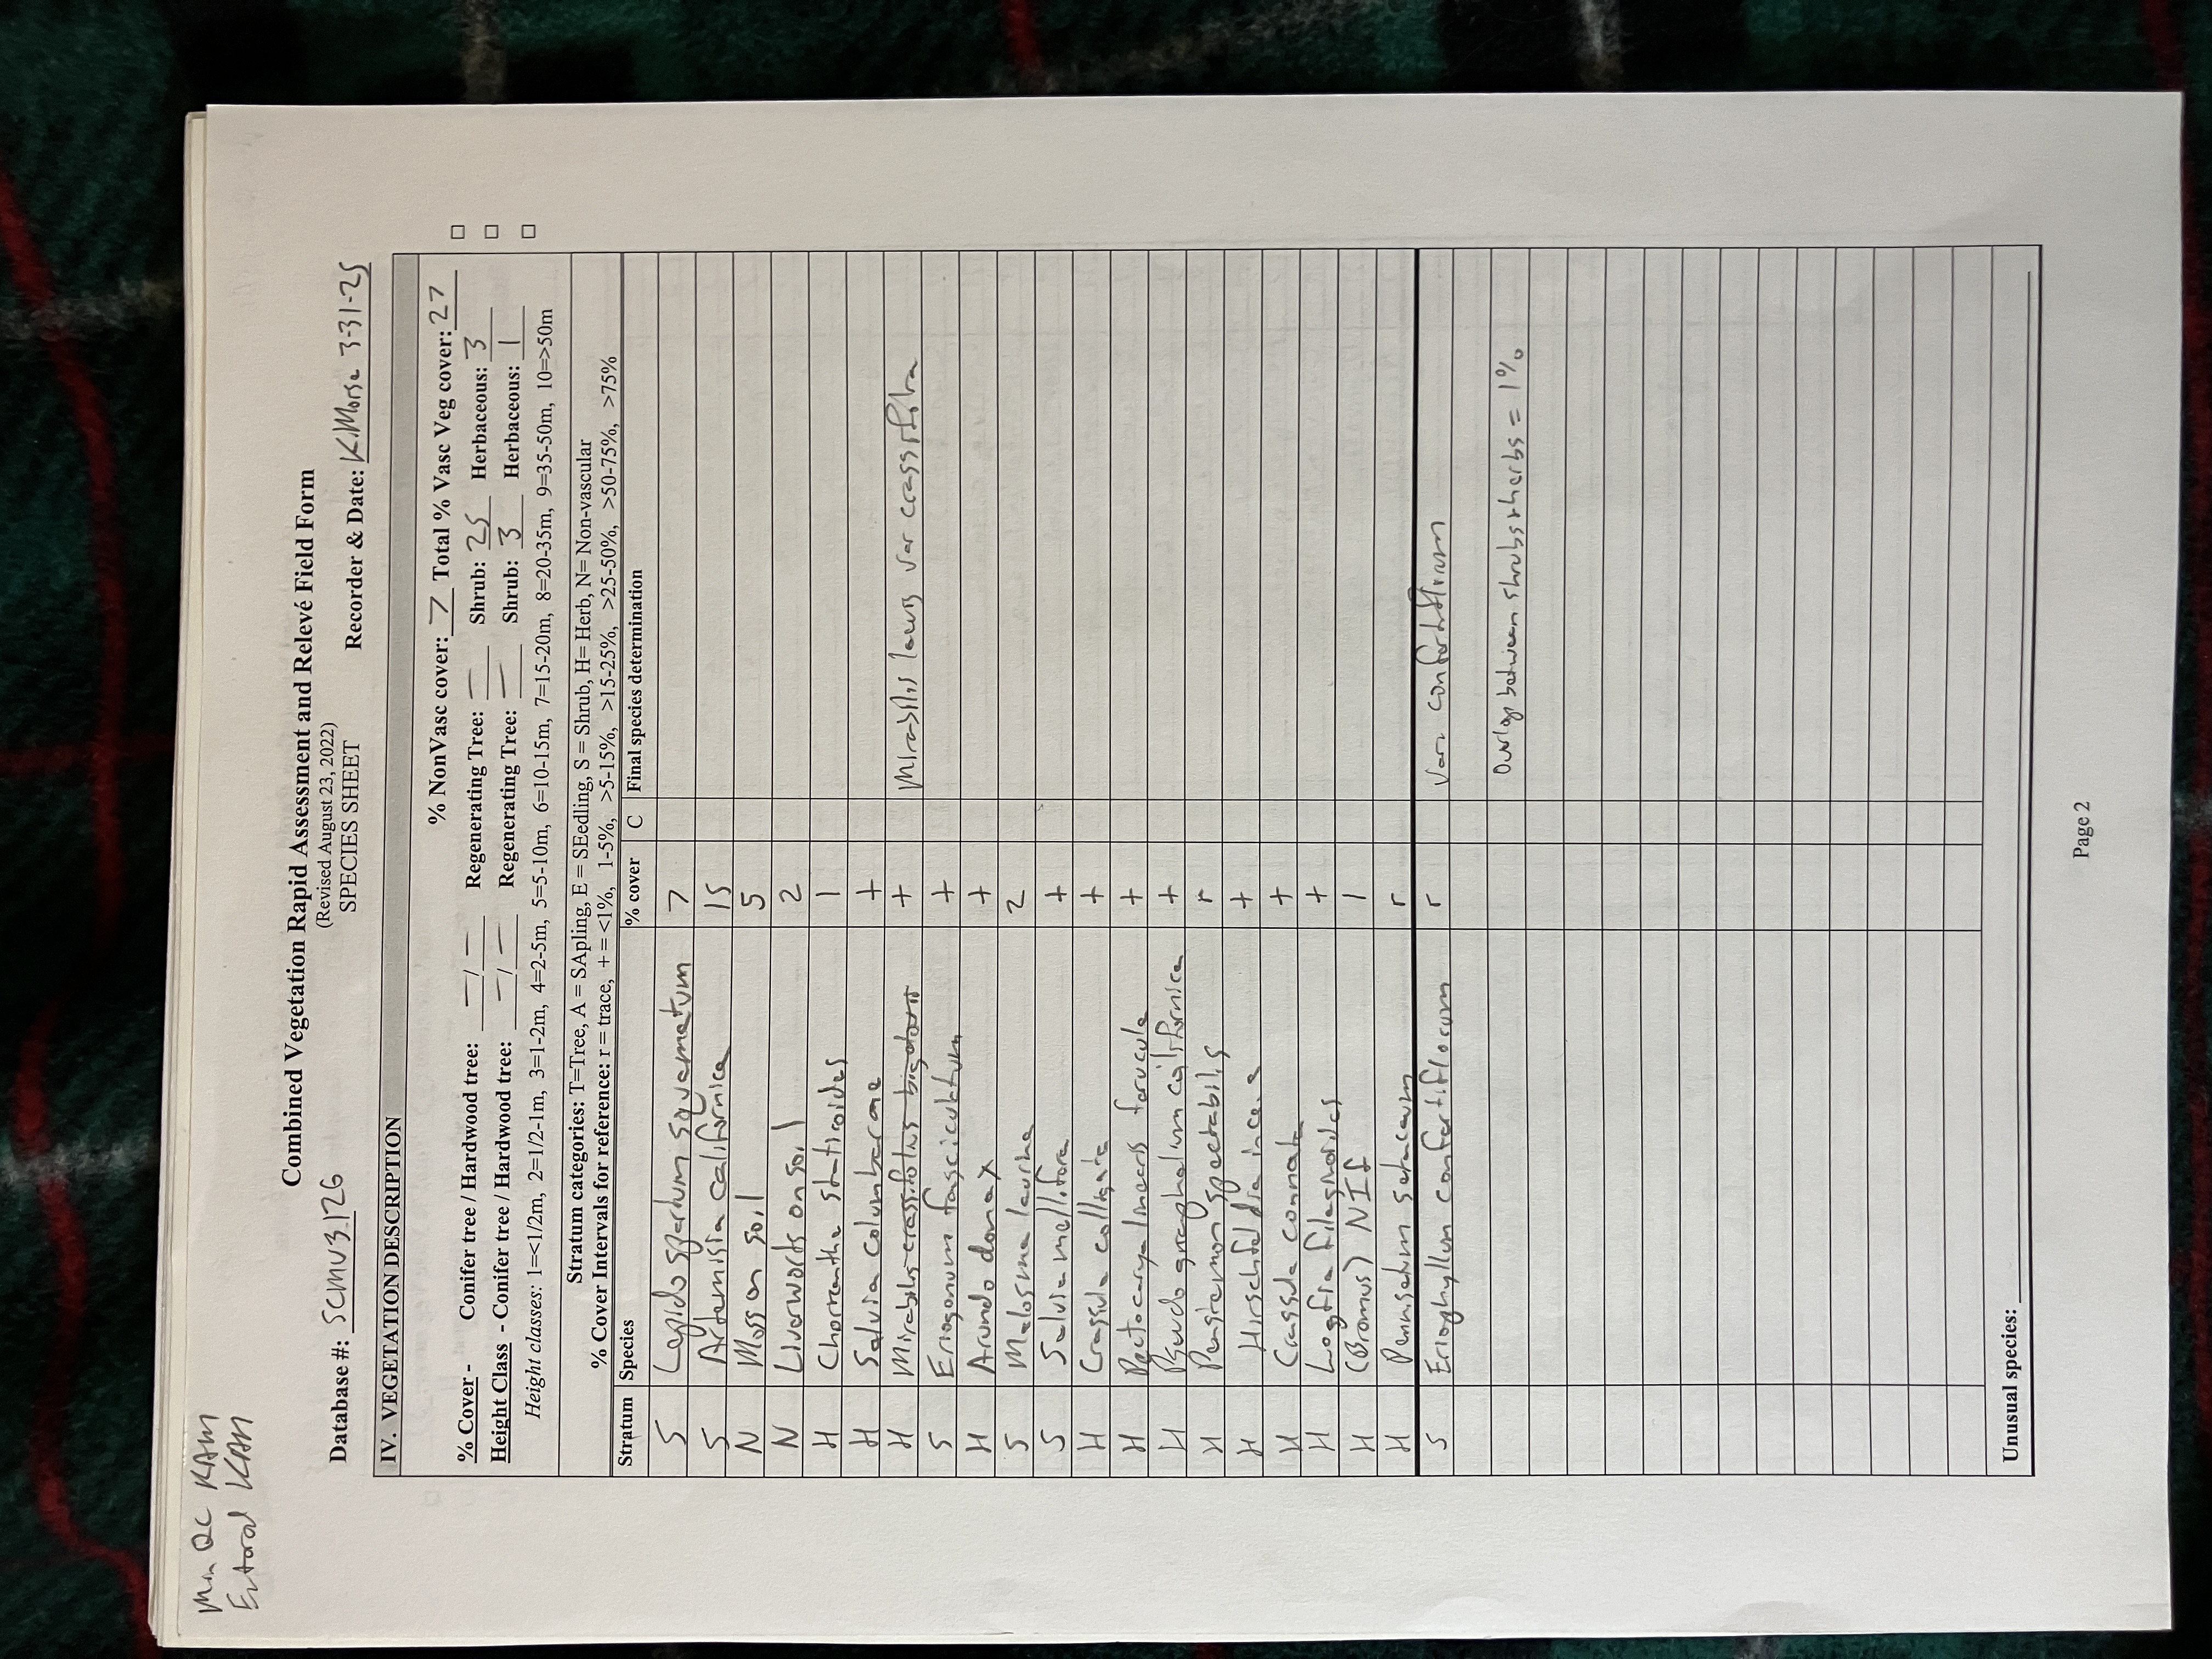 Min QC KAM
Entered KAM
Combined Vegetation Rapid Assessment and Relevé Field Form
(Revised August 23, 2022)
SPECIES SHEET
Database #: SCMV3126 Recorder & Date: K.Morse 3-31-25
IV. VEGETATION DESCRIPTION
% NonVasc cover: 7 Total % Vasc Veg cover: 27
% Cover - Conifer tree / Hardwood tree: — / — Regenerating Tree: — Shrub: 25 Herbaceous: 3
Height Class - Conifer tree / Hardwood tree: — / — Regenerating Tree: — Shrub: 3 Herbaceous: 1
Height classes: 1=<1/2m, 2=1/2-1m, 3=1-2m, 4=2-5m, 5=5-10m, 6=10-15m, 7=15-20m, 8=20-35m, 9=35-50m, 10=>50m
Stratum categories: T=Tree, A = SApling, E = SEedling, S = Shrub, H= Herb, N= Non-vascular
% Cover Intervals for reference: r = trace, + = <1%, 1-5%, >5-15%, >15-25%, >25-50%, >50-75%, >75%
Stratum Species % cover C Final species determination
S Lepidospartum squamatum 7
S Artemisia californica 15
N Moss on soil 5
N Liverworts on soil 2
H Chorizanthe staticoides 1
H Salvia columbariae +
H Mirabilis crassifolius + Mirabilis laevis var crassifolia
S Eriogonum fasciculatum +
H Arundo donax +
S Malosma laurina 2
S Salvia mellifera +
H Crassula colligata +
H Pectocarya linearis ferocula +
H Pseudognaphalium californica +
H Penstemon spectabilis r
H Hirschfeldia incana +
H Crassula connata +
H Logfia filagnoides +
H (Bromus) NIF 1
H Pennisetum setaceum r
S Eriophyllum confertiflorum r Var confertiflorum
Overlap between shrubs & herbs = 1%
Unusual species:
Page 2